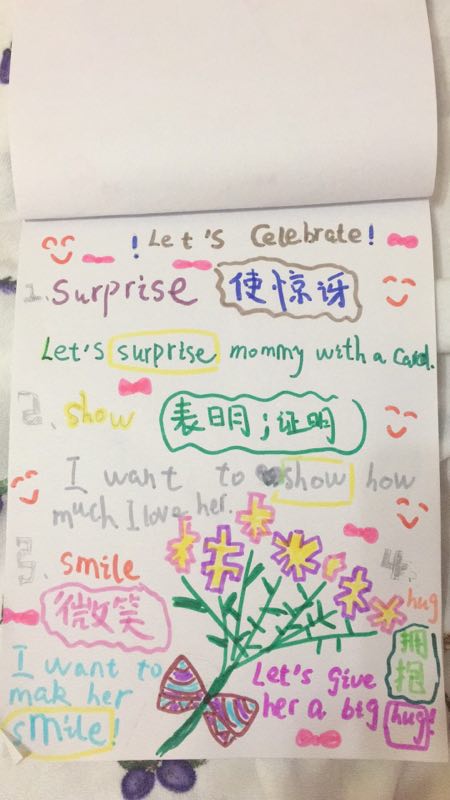 ! Let's Celebrate!
1. Surprise 使惊讶
Let's surprise mommy with a card.
2. show 表明；证明
I want to show how
much I love her.
3. smile
微笑
I want to
mak her
smile!
4. hug
拥抱
Let's give
her a big
hug!